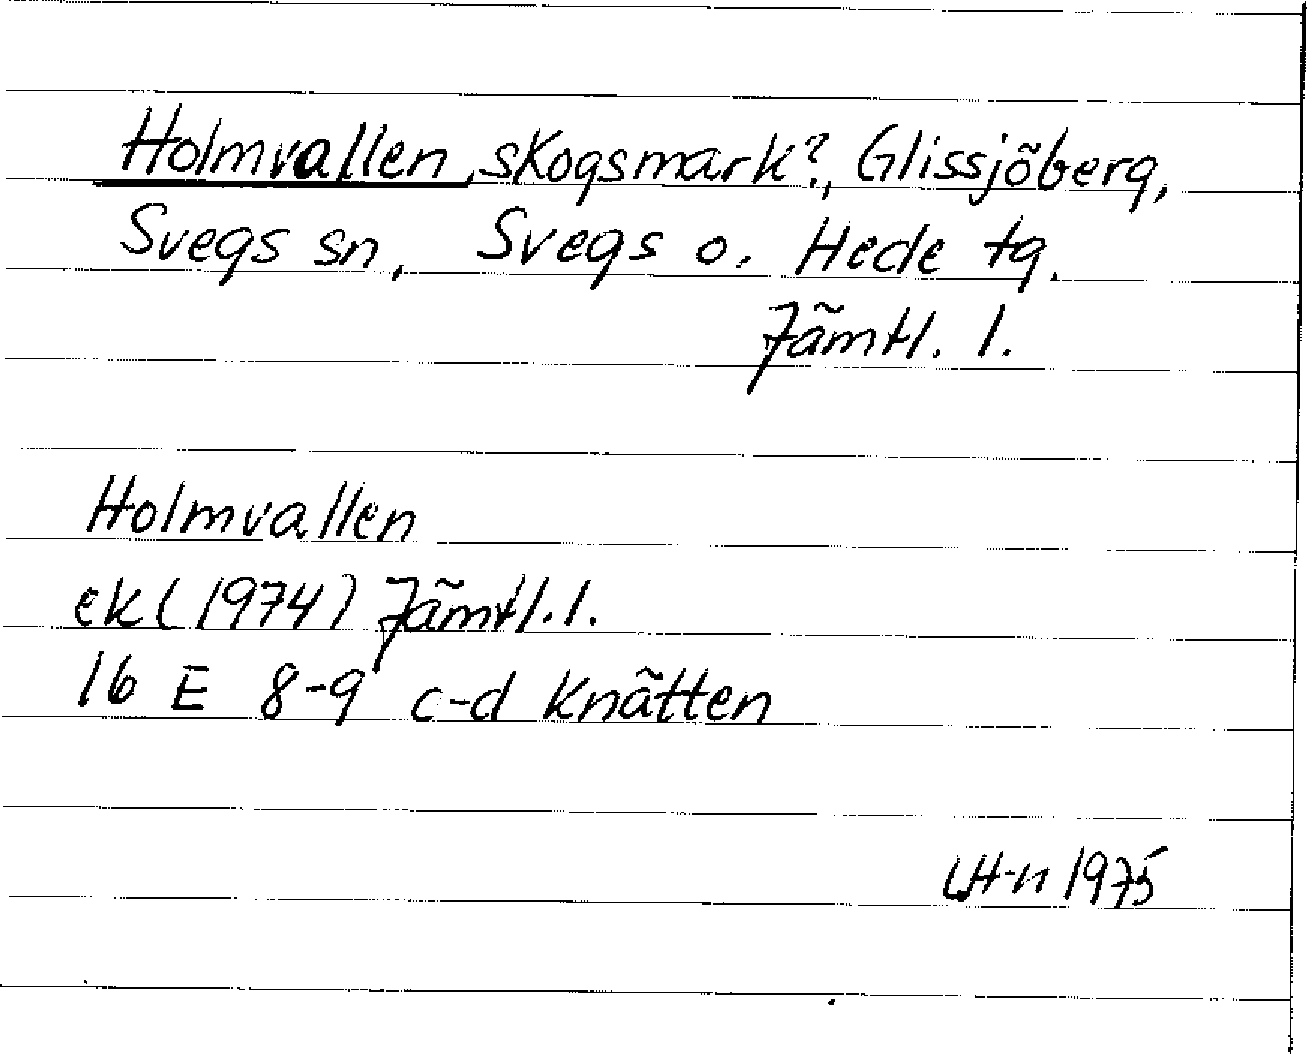 Holmvallen, skogsmark?, Glissjöberg,
Svegs sn, Svegs o. Hede tg.
Jämtl. l.
Holmvallen
ek (1974) Jämtl. l.
16 E 8-9 c-d Knätten
LH-n 1975